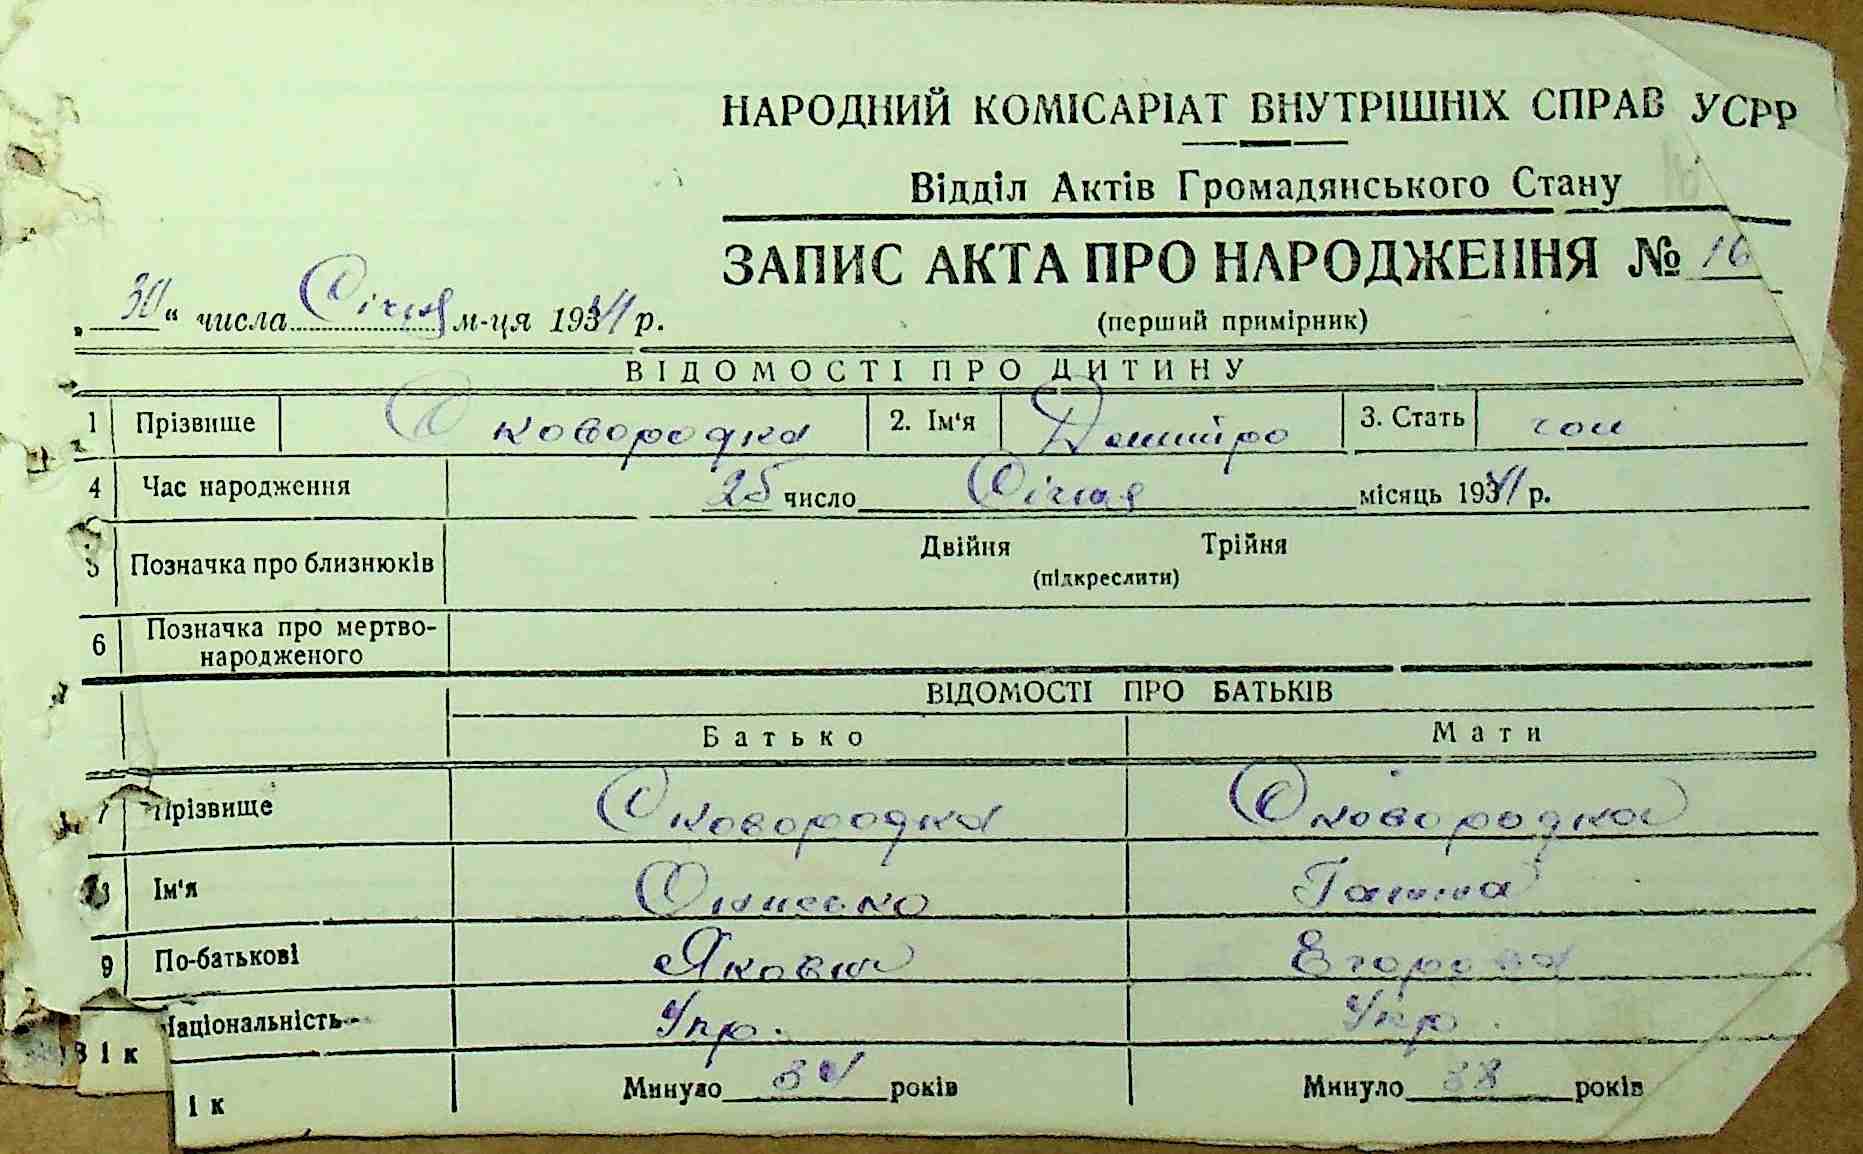 НАРОДНИЙ КОМІСАРІАТ ВНУТРІШНІХ СПРАВ УСРР
Відділ Актів Громадянського Стану
ЗАПИС АКТА ПРО НАРОДЖЕННЯ № 16
„30“ числа Січня м-ця 1934 р.
(перший примірник)
ВІДОМОСТІ ПРО ДИТИНУ
1 Прізвище Сковородка 2. Ім'я Дмитро 3. Стать чол
4 Час народження 25 число Січня місяць 1934 р.
5 Позначка про близнюків Двійня Трійня
(підкреслити)
6 Позначка про мертво-
народженого
ВІДОМОСТІ ПРО БАТЬКІВ
Батько Мати
7 Прізвище Сковородка Сковородка
8 Ім'я Онисько Ганна
9 По-батькові Якович Егоровна
Національність Укр. Укр.
В і к
і к Минуло 34 років Минуло 38 років